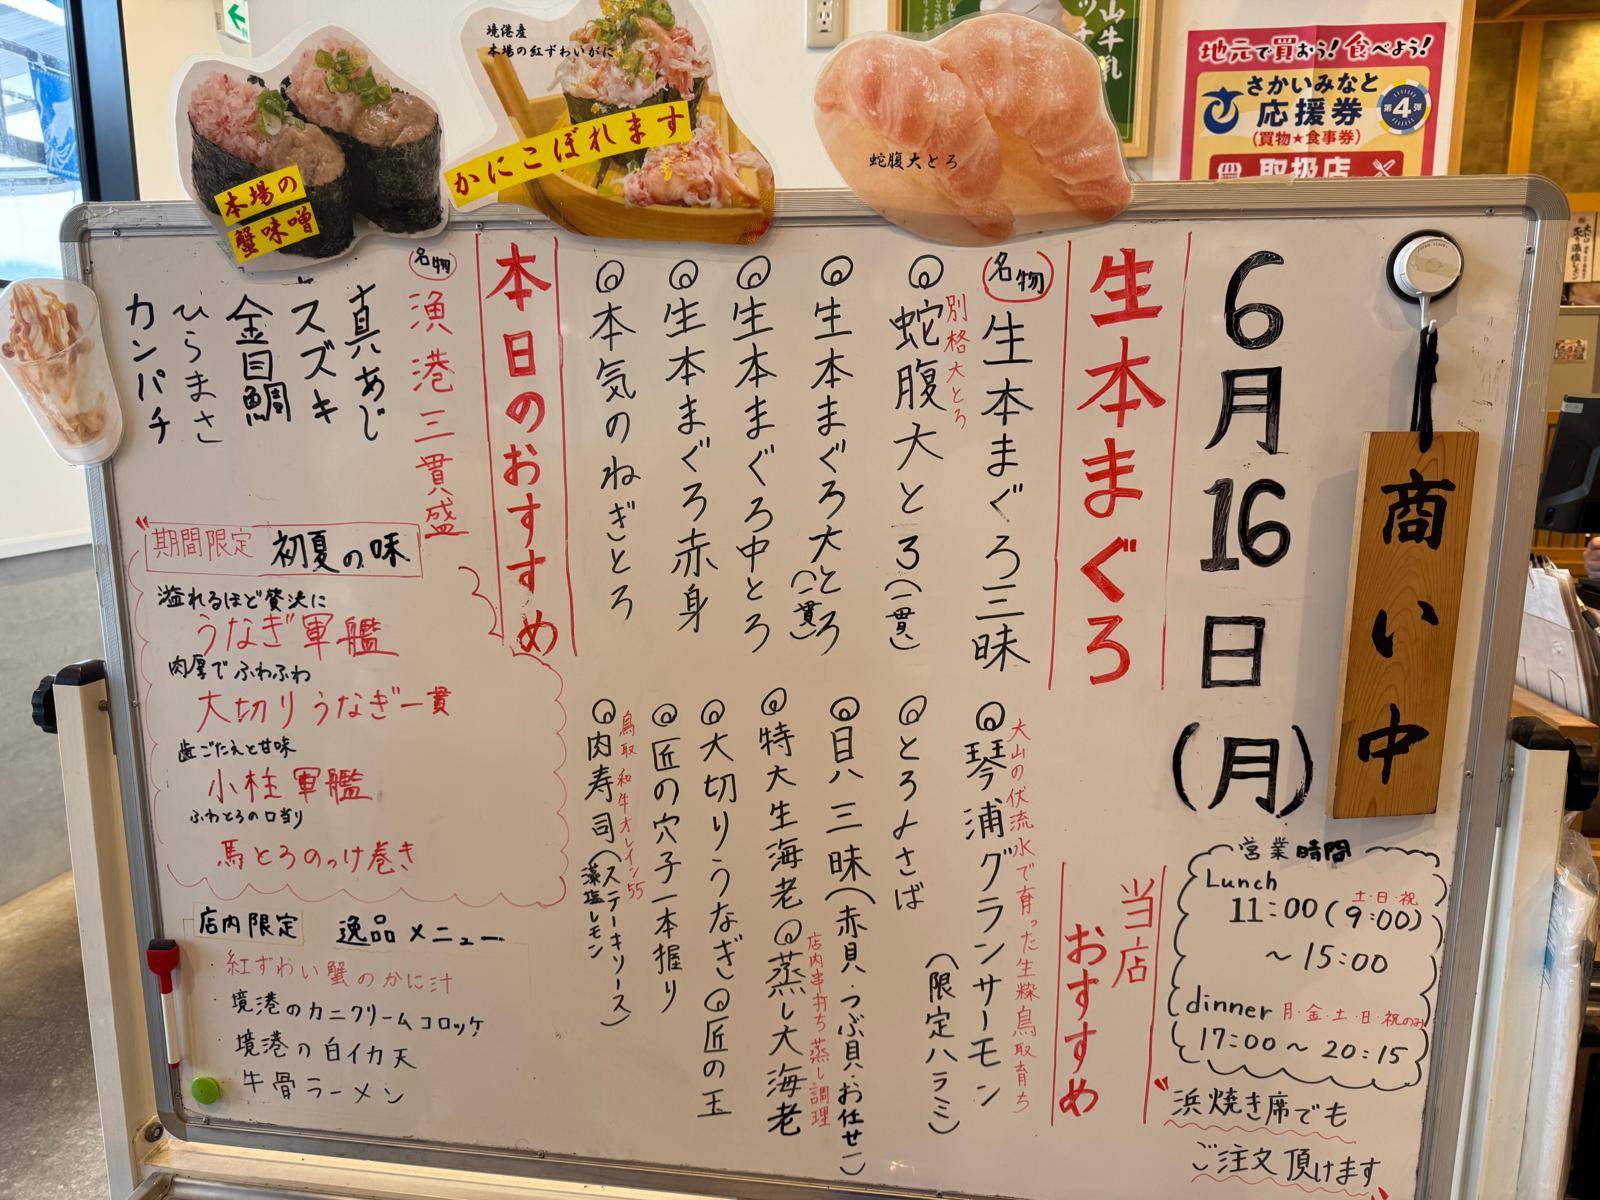 境港産
本場の紅ずわいがに
かにこぼれます
本場の
蟹味噌
蛇腹大とろ
山牛乳
地元で買おう!食べよう!
さかいみなと
応援券
(買物★食事券)
第4弾
取扱店
商い中
6月16日(月)
営業時間
Lunch
土・日・祝
11:00(9:00)
~15:00
dinner 月・金・土・日・祝のみ
17:00~20:15
浜焼き席でも
ご注文頂けます
生本まぐろ
名物 生本まぐろ三昧
別格大とろ
◎蛇腹大とろ(一貫)
◎生本まぐろ大とろ(一貫)
◎生本まぐろ中とろ
◎生本まぐろ赤身
◎本気のねぎとろ
当店
おすすめ
大山の伏流水で育った生粋鳥取育ち
◎琴浦グランサーモン
(限定ハラミ)
◎とろ〆さば
◎目八三昧(赤貝・つぶ貝・お任せ一)
◎特大生海老 ◎蒸し大海老
店内串打ち蒸し調理
◎大切りうなぎ ◎匠の玉
◎匠の穴子一本握り
鳥取和牛オレイン55
◎肉寿司(ステーキソース)
藻塩レモン
本日のおすすめ
名物 漁港三貫盛
真あじ
スズキ
金目鯛
ひらまさ
カンパチ
期間限定 初夏の味
溢れるほど贅沢に
うなぎ軍艦
肉厚でふわふわ
大切りうなぎ一貫
歯ごたえと甘味
小柱軍艦
ふわとろの口当り
馬とろのっけ巻き
店内限定 逸品メニュー
・紅ずわい蟹のかに汁
・境港のカニクリームコロッケ
・境港の白イカ天
・牛骨ラーメン